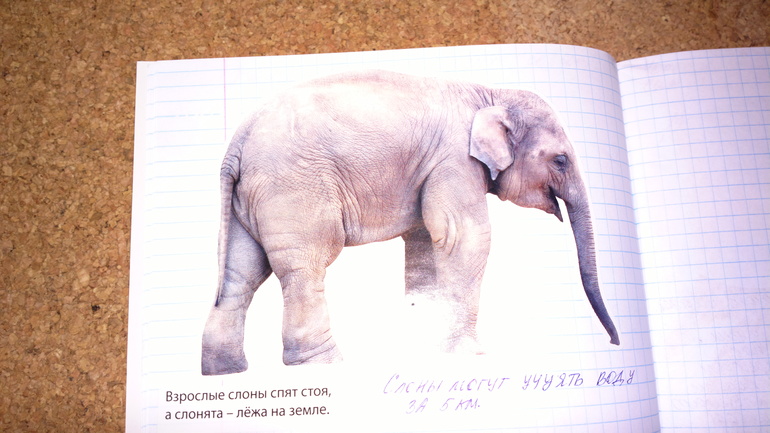 Взрослые слоны спят стоя,
а слонята – лёжа на земле.
Слоны могут учуять воду
за 5 км.